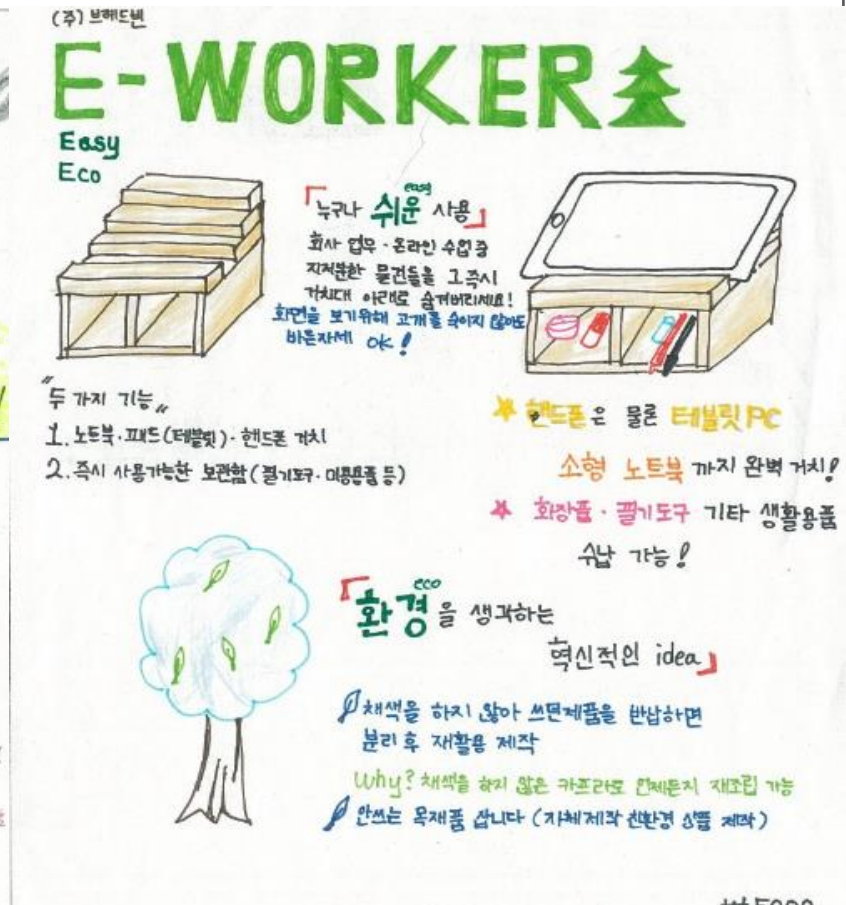 (주) 브레드빈
E-WORKER
Easy
Eco
「누구나 쉬운 사용」
easy
회사 업무·온라인 수업 중
지저분한 물건들을 그 즉시
거치대 아래로 숨겨버리세요!
화면을 보기위해 고개를 숙이지 않아도
바른자세 OK!
"두 가지 기능"
1. 노트북·패드(테블릿)·핸드폰 거치
2. 즉시 사용가능한 보관함(필기도구·미용용품 등)
핸드폰은 물론 테블릿PC
소형 노트북까지 완벽 거치!
화장품·필기도구 기타 생활용품
수납 가능!
「환경을 생각하는
eco
혁신적인 idea」
채색을 하지 않아 쓰던제품을 반납하면
분리 후 재활용 제작
Why? 채색을 하지 않은 카프라로 언제든지 재조립 가능
안쓰는 목재품 삽니다 (자체제작 친환경 상품 제작)